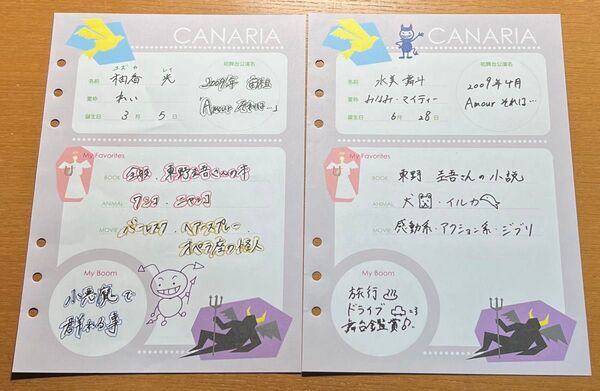 CANARIA
初舞台公演名
ユズ カ レイ
名前 柚香 光
2009年 宙組
愛称 れい
「Amour それは…」
誕生日 3月 5日
My Favorites
BOOK 東野圭吾さんの本
ANIMAL ワンコ ニャンコ
MOVIE バーレスク ヘアースプレー
オペラ座の怪人
My Boom
小悪魔で
群れる事
CANARIA
初舞台公演名
名前 水美 舞斗
2009年4月
愛称 みなみ・マイティー
Amour それは…
誕生日 6月 28日
My Favorites
BOOK 東野 圭吾さんの小説
ANIMAL 犬 ・イルカ
MOVIE 感動系・アクション系・ジブリ
My Boom
旅行
ドライブ
舞台鑑賞